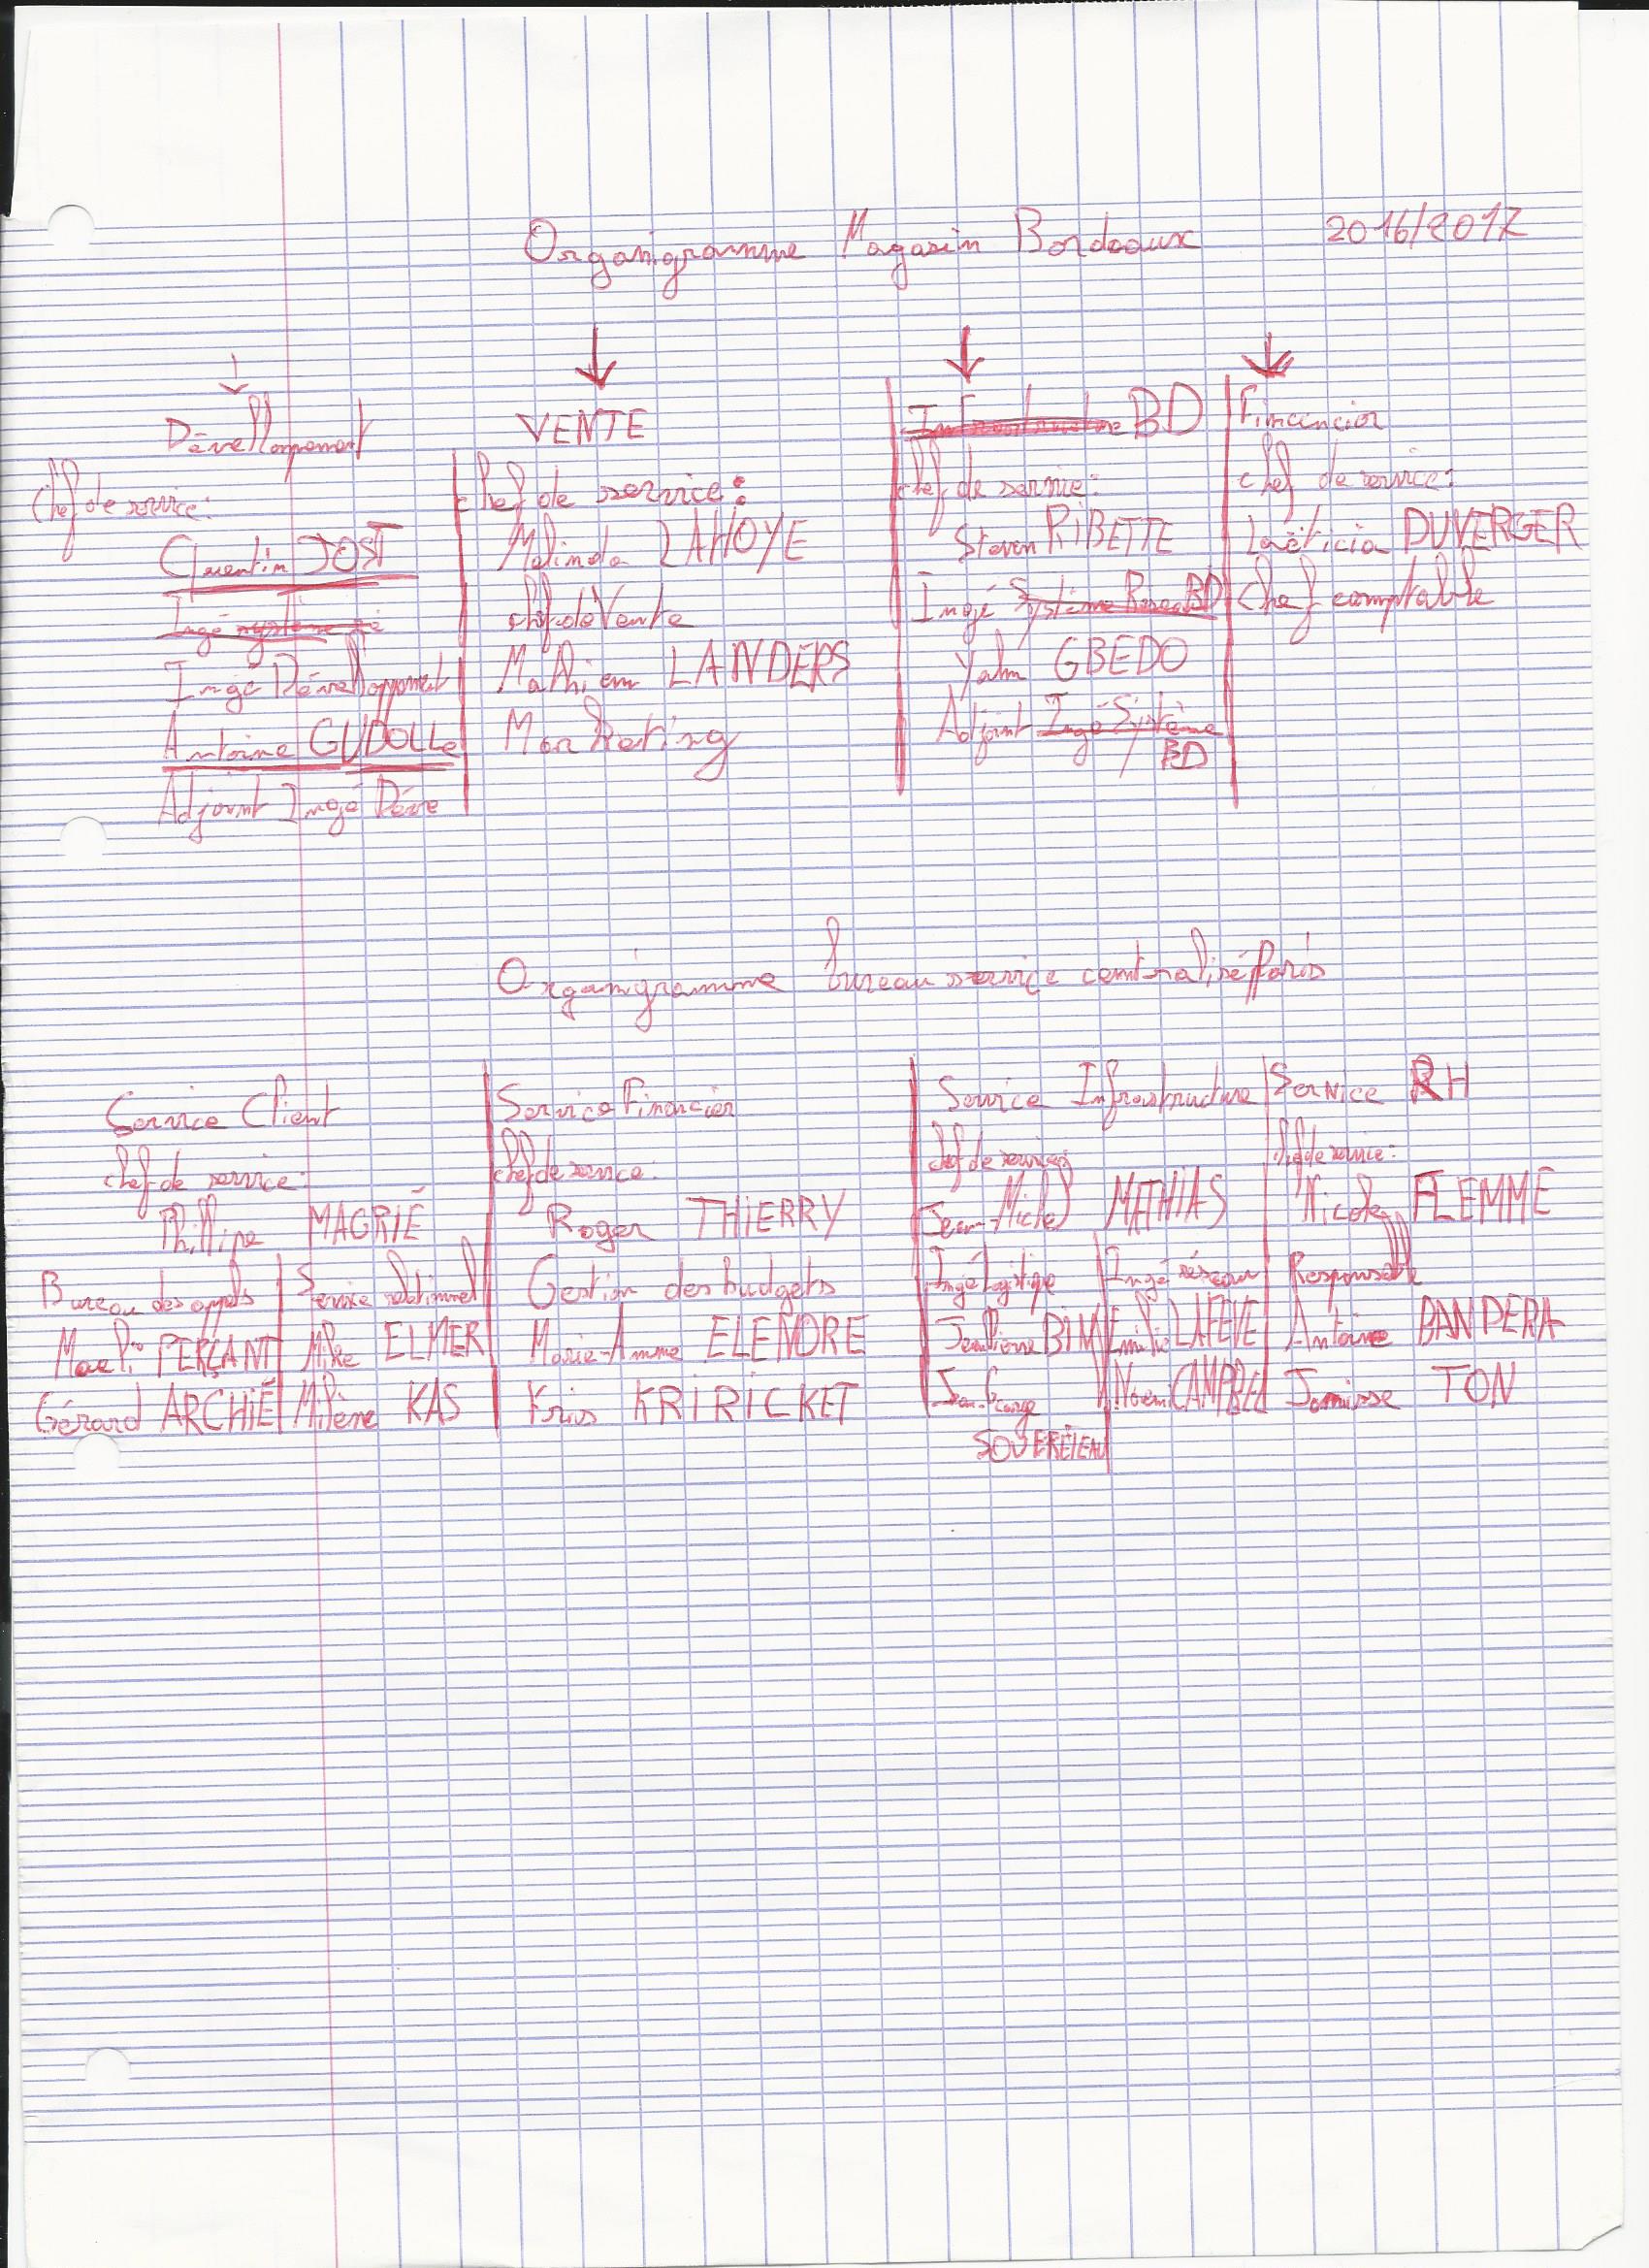 Organigramme Magasin Bordeaux 2016/2017
Dévelloppement
Chef de service:
Quentin JOST
Ingé système
Ingé Dévelloppement
Antoine GUDOLLe
Adjoint Ingé Déve
VENTE
chef de service:
Melinda LAHOYE
chef de Vente
Mathieu LANDERS
Marketing
Infrastructure BD
chef de service:
Steven RIBETTE
Ingé Système BD
Yahn GBEDO
Adjoint Ingé Système
BD
Financier
chef de service:
Laëticia DUVERGER
Chef comptable
Organigramme bureau service centralisé Paris
Service Client
chef de service:
Phillipe MAGRIÉ
Bureau des appels
PERÇANT
Gérard ARCHIÉ
Service relationnel
Mike ELMER
Milène KAS
Service Financier
chef de service:
Roger THIERRY
Gestion des budgets
Marie-Anne ELENORE
Kris KRIRICKET
Service Infrastructure
chef de service:
Jean-Michel MATHIAS
Ingé Logistique
Jean Pierre BIM
Jean-George
SOUERÉTEAU
Ingé réseau
Emilie LAFEVE
Noémi CAMPBEL
Service RH
chef de service:
Nicole FLEMME
Responsable
Antoine BANDERA
Jamisse TON